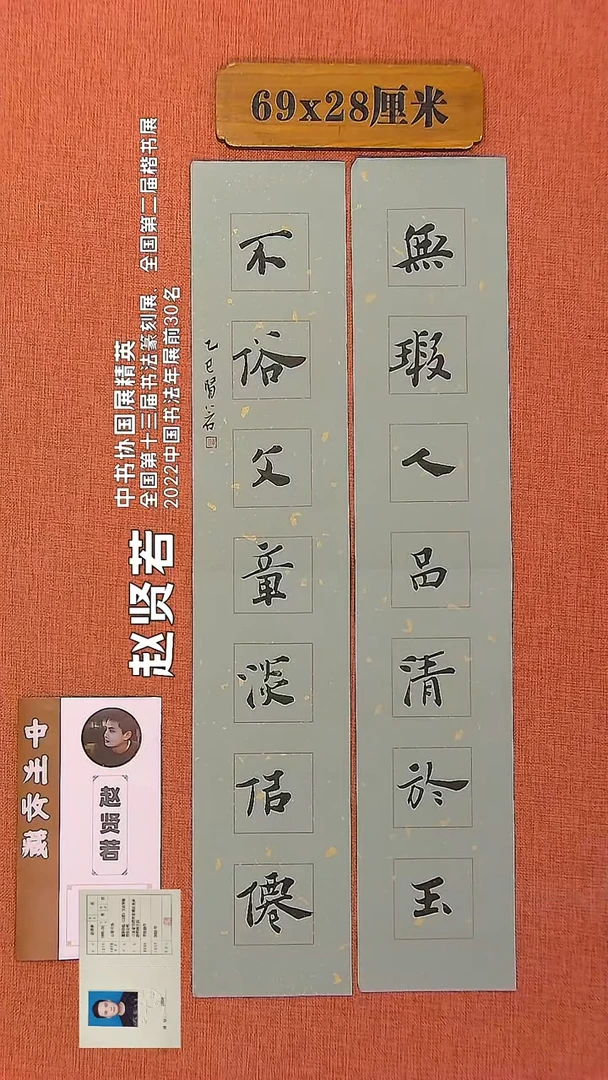 69x28厘米
無瑕人品清於玉
不俗文章淡佀僊
乙巳賢若
全国第二届楷书展
中书协国展精英
全国第十三届书法篆刻展、
2022中国书法年展前30名
赵贤若
赵贤若